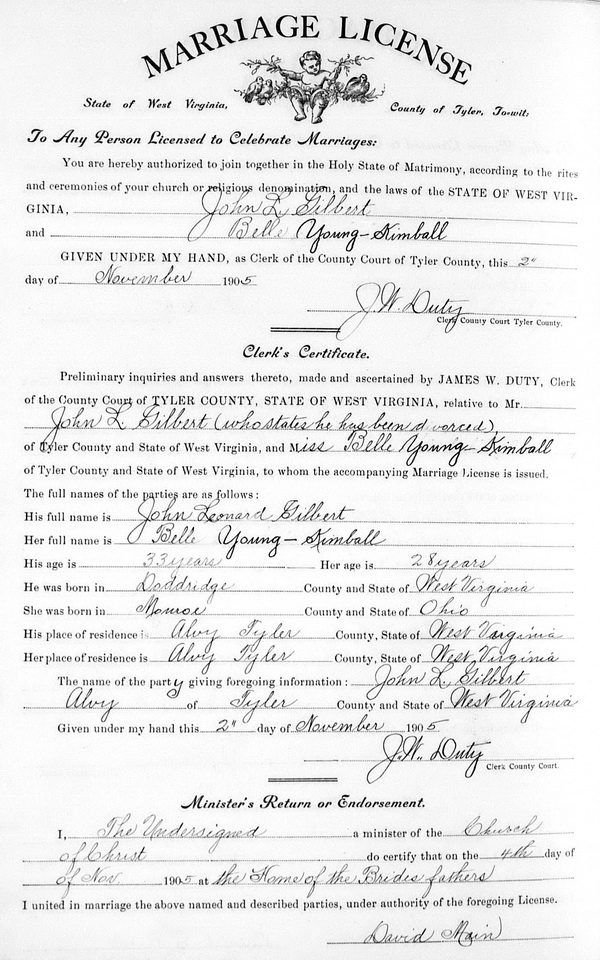 MARRIAGE LICENSE
State of West Virginia, County of Tyler, To-wit:
To Any Person Licensed to Celebrate Marriages:
You are hereby authorized to join together in the Holy State of Matrimony, according to the rites
and ceremonies of your church or religious denomination, and the laws of the STATE OF WEST VIR-
GINIA, John L. Gilbert
and Belle Young-Kimball
GIVEN UNDER MY HAND, as Clerk of the County Court of Tyler County, this 2"
day of November 1905
J. W. Duty
Clerk County Court Tyler County.
Clerk's Certificate.
Preliminary inquiries and answers thereto, made and ascertained by JAMES W. DUTY, Clerk
of the County Court of TYLER COUNTY, STATE OF WEST VIRGINIA, relative to Mr.
John L. Gilbert (who states he has been d vorced),
of Tyler County and State of West Virginia, and Miss Belle Young-Kimball
of Tyler County and State of West Virginia, to whom the accompanying Marriage License is issued.
The full names of the parties are as follows:
His full name is John Leonard Gilbert
Her full name is Belle Young-Kimball
His age is 33 years Her age is 28 years
He was born in Doddridge County and State of West Virginia
She was born in Monroe County and State of Ohio
His place of residence is Alvy Tyler County, State of West Virginia
Her place of residence is Alvy Tyler County, State of West Virginia
The name of the party giving foregoing information: John L. Gilbert
Alvy of Tyler County and State of West Virginia
Given under my hand this 2" day of November 1905
J. W. Duty
Clerk County Court.
Minister's Return or Endorsement.
I, The Undersigned a minister of the Church
of Christ do certify that on the 4th day of
of Nov. 1905 at the Home of the Brides fathers
I united in marriage the above named and described parties, under authority of the foregoing License.
David Main